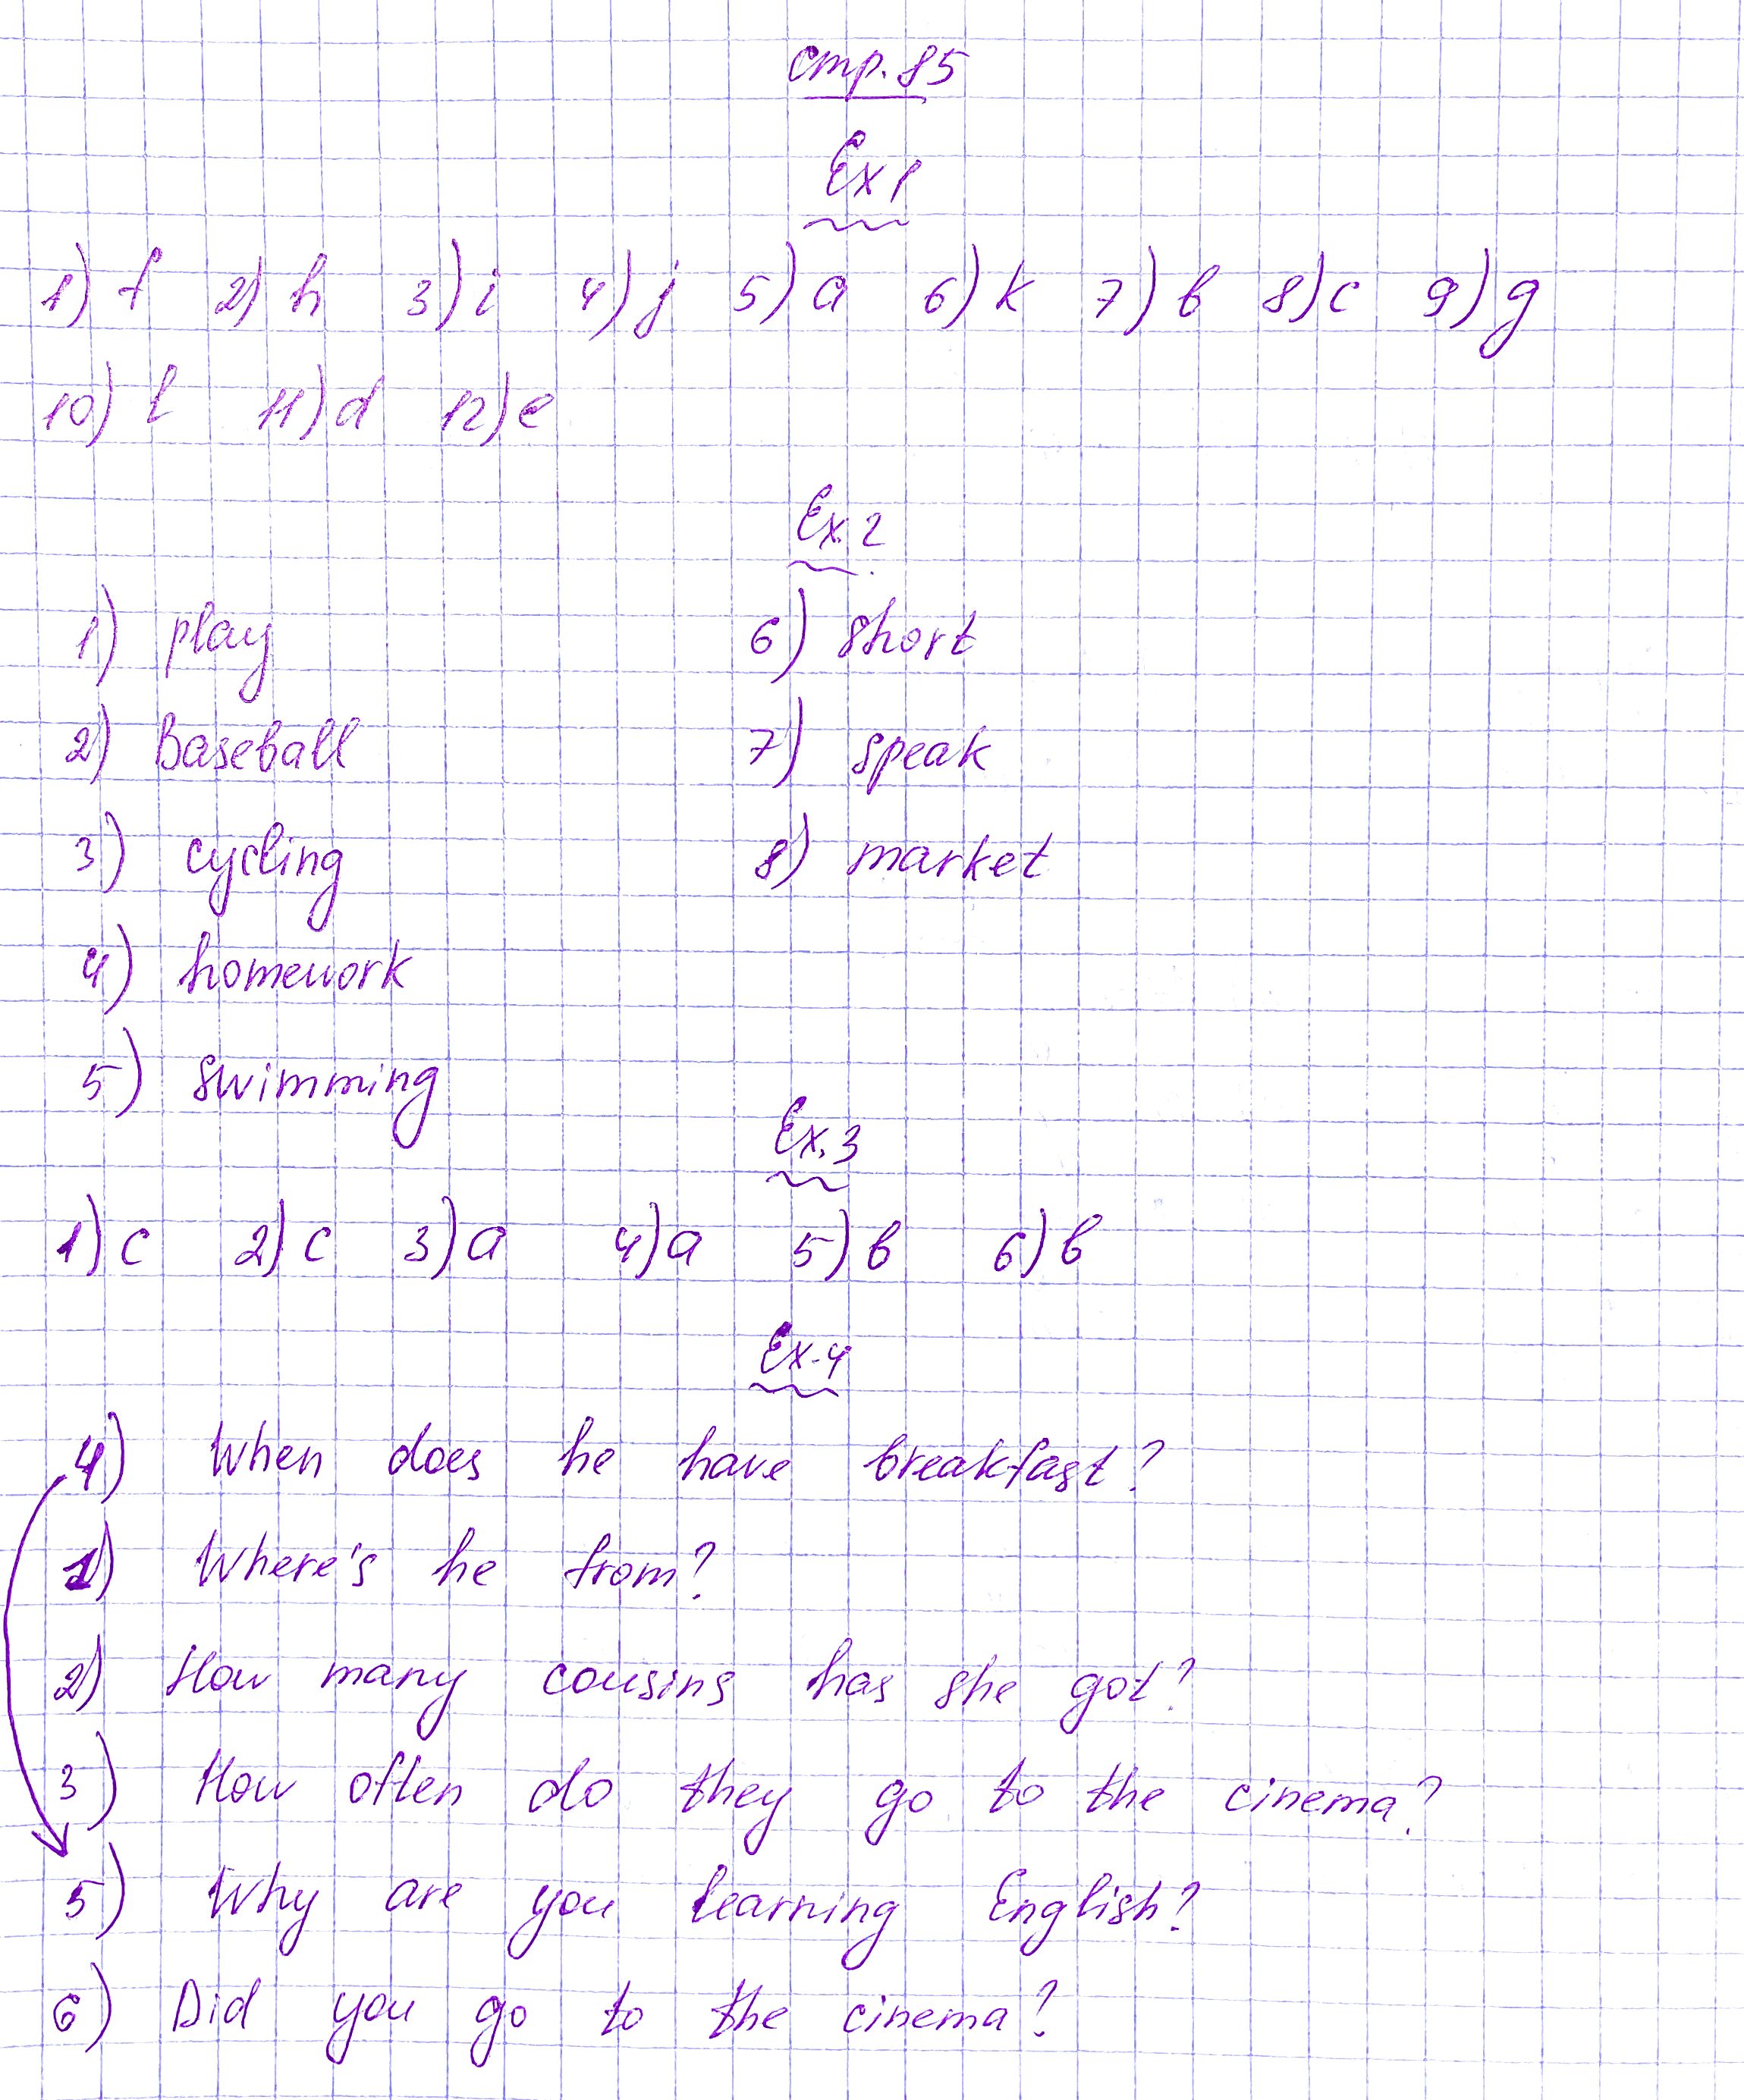 стр. 85
Ex 1
1) f 2) h 3) i 4) j 5) a 6) k 7) b 8) c 9) g
10) l 11) d 12) e
Ex. 2
1) play 6) short
2) Baseball 7) speak
3) cycling 8) market
4) homework
5) swimming
Ex. 3
1) c 2) c 3) a 4) a 5) b 6) b
Ex. 4
4) When does he have breakfast?
1) Where's he from?
2) How many cousins has she got?
3) How often do they go to the cinema?
5) Why are you learning English?
6) Did you go to the cinema?